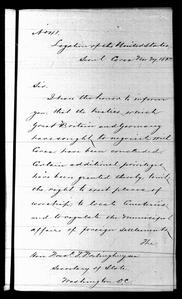 Legation of the United States
Seoul Corea Nov 29, 188
Sir:
I have the honor to inform
you, that the treaties which
Great Britain and Germany
have sought to negotiate with
Corea have been concluded.
Certain additional privileges
have been granted thereby
the right to erect places of
worship to locate Cemeteries,
and to regulate the municipal
affairs of foreign settlements
The
Hon. Fredk. T. Frelinghuysen
Secretary of State
Washington D.C.